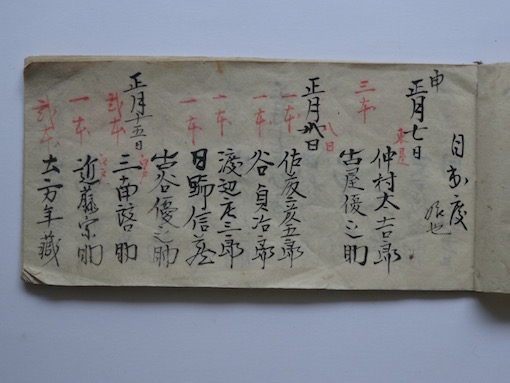 目出度
申
正月七日
仲村太吉郎
三本
古屋優之助
正月 日
八日
一本
五郎
一本
谷貞治郎
一本
渡辺庄三郎
一本
日野信
古谷優之助
正月十五日
弐本
三南啓助
一本
近藤宗助
弐本
年蔵